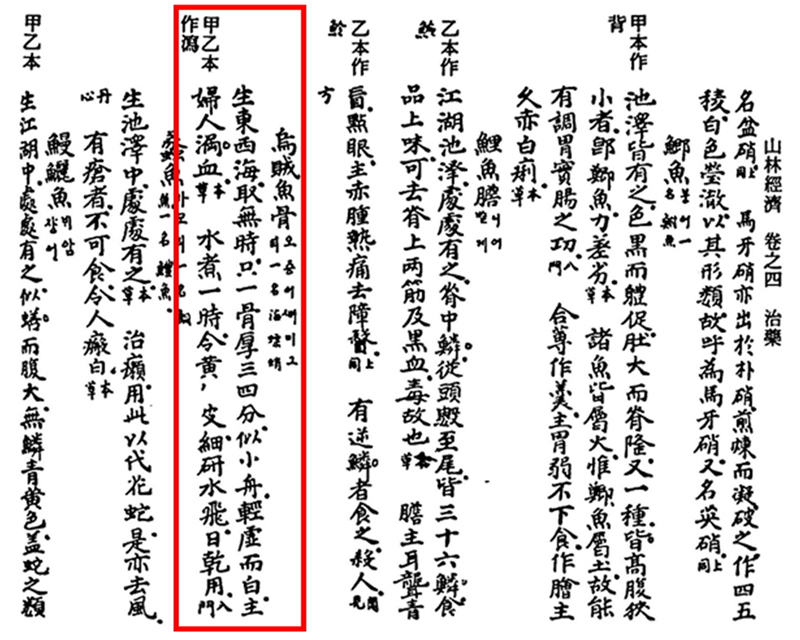 山林經濟 卷之四 治藥
名盆硝同上 馬牙硝亦出於朴硝煎煉而凝破之作四五
稜白色瑩澈以其形類故呼為馬牙硝又名英硝同上
鯽魚붕어一名鮒魚
甲本作背
池澤皆有之色黑而體促肚大而脊隆又一種皆高腹狹
小者卽鯽魚力差劣本草 諸魚皆屬火惟鯽魚屬土故能
有調胃實腸之功入門 合蓴作羹主胃弱不下食作膾主
久赤白痢本草
鯉魚膽
乙本作
江湖池澤處處有之脊中鱗從頭數至尾皆三十六鱗食
品上味可去脊上兩筋及黑血毒故也本草 膽主耳聾青
乙本作
盲點眼主赤腫熱痛去障翳同上 有逆鱗者食之殺人
方
烏賊魚骨오증어
甲乙本作瀉
生東西海取無時只一骨厚三四分似小舟輕虛而白主
婦人漏血本草 水煮一時令黃皮細研水飛日乾用入門
魚 一名鱧魚
生池澤中處處有之本草 治癩用此以代花蛇是亦去風
丹心
有瘡者不可食令人瘢白本草
鰻鱺魚
甲乙本
生江湖中處處有之似鱔而腹大無鱗青黃色蓋蛇之類